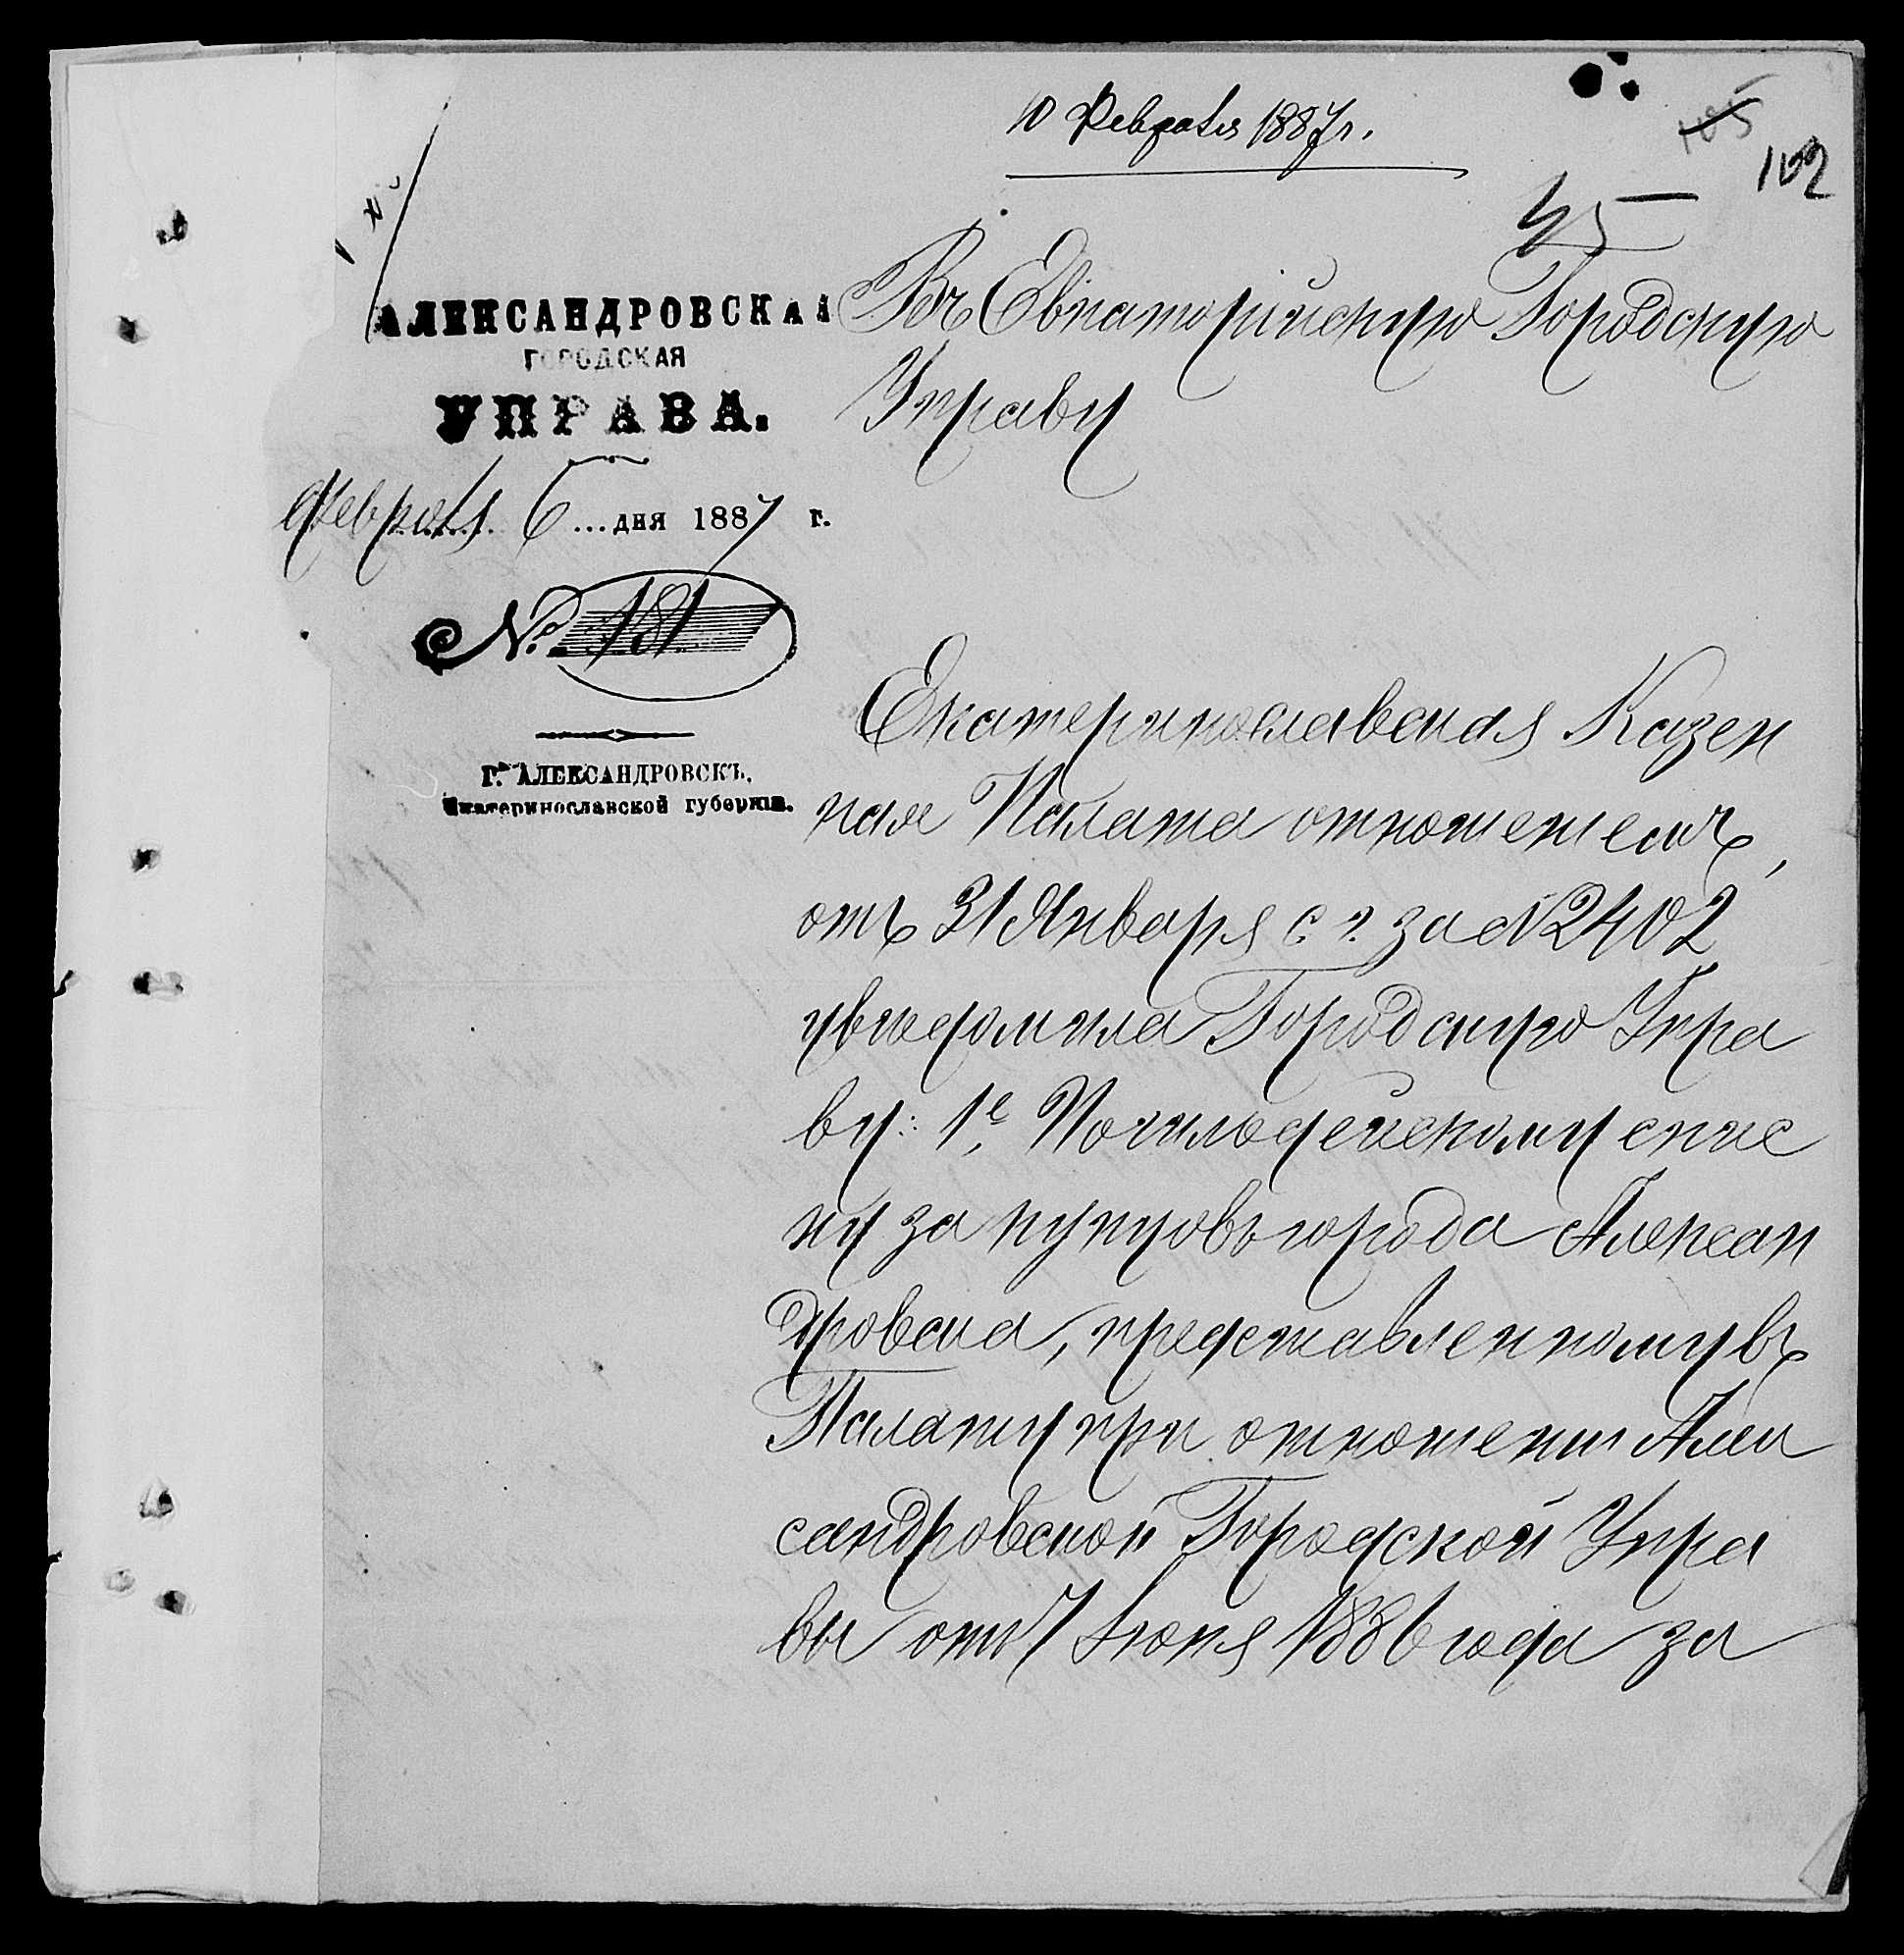 10 Февраля 1887 г.
105
102
45
АЛЕКСАНДРОВСКАЯ
ГОРОДСКАЯ
УПРАВА.
Февраля 6 ... дня 1887 г.
№ 181
Г. АЛЕКСАНДРОВСКЪ,
Екатеринославской губерніи.
Въ Евпаторійскую Городскую
Управу
Екатеринославская Казен
ная Палата отношеніемъ,
отъ 31 Января с. г. за № 2402
увѣдомила Городскую Упра
ву: 1е, По гильдейскому спис
ку за купцовъ города Алексан
дровска, представленному въ
Палату при отношеніи Алек
сандровской Городской Упра
вы отъ 7 Іюня 1886 года за